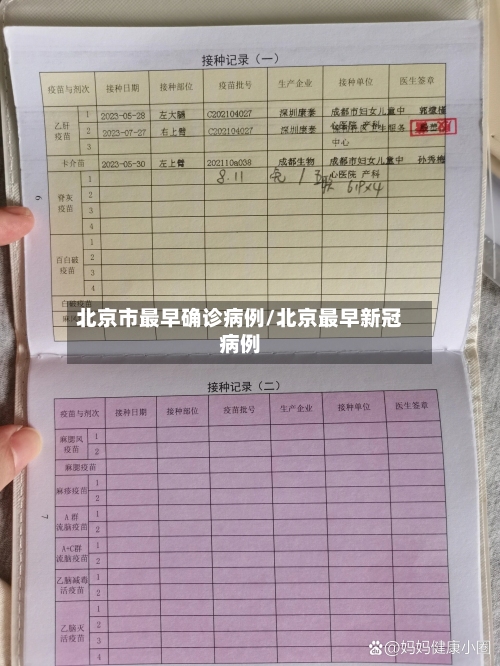 接种记录（一）
疫苗与剂次 接种日期 接种部位 疫苗批号 生产企业 接种单位 医生签章
乙肝疫苗 1 2023-05-28 左大腿 C202104027 深圳康泰 成都市妇女儿童中心医院 产科
2 2023-07-27 右上臂 C202104027 深圳康泰 中心
卡介苗 2023-05-30 左上臂 202110a038 成都生物 成都市妇女儿童中心医院 产科 孙秀梅
脊灰疫苗 1 8.11
2
3
4
百白破疫苗 1
2
3
4
白破疫苗
北京市最早确诊病例/北京最早新冠
病例
6
接种记录（二）
疫苗与剂次 接种日期 接种部位 疫苗批号 生产企业 接种单位 医生签章
麻腮风疫苗 1
2
麻腮疫苗
麻疹疫苗 1
2
A群流脑疫苗 1
2
A+C群流脑疫苗 1
2
乙脑减毒活疫苗 1
2
乙脑灭活疫苗 1
2
3
4
7
@妈妈健康小圈